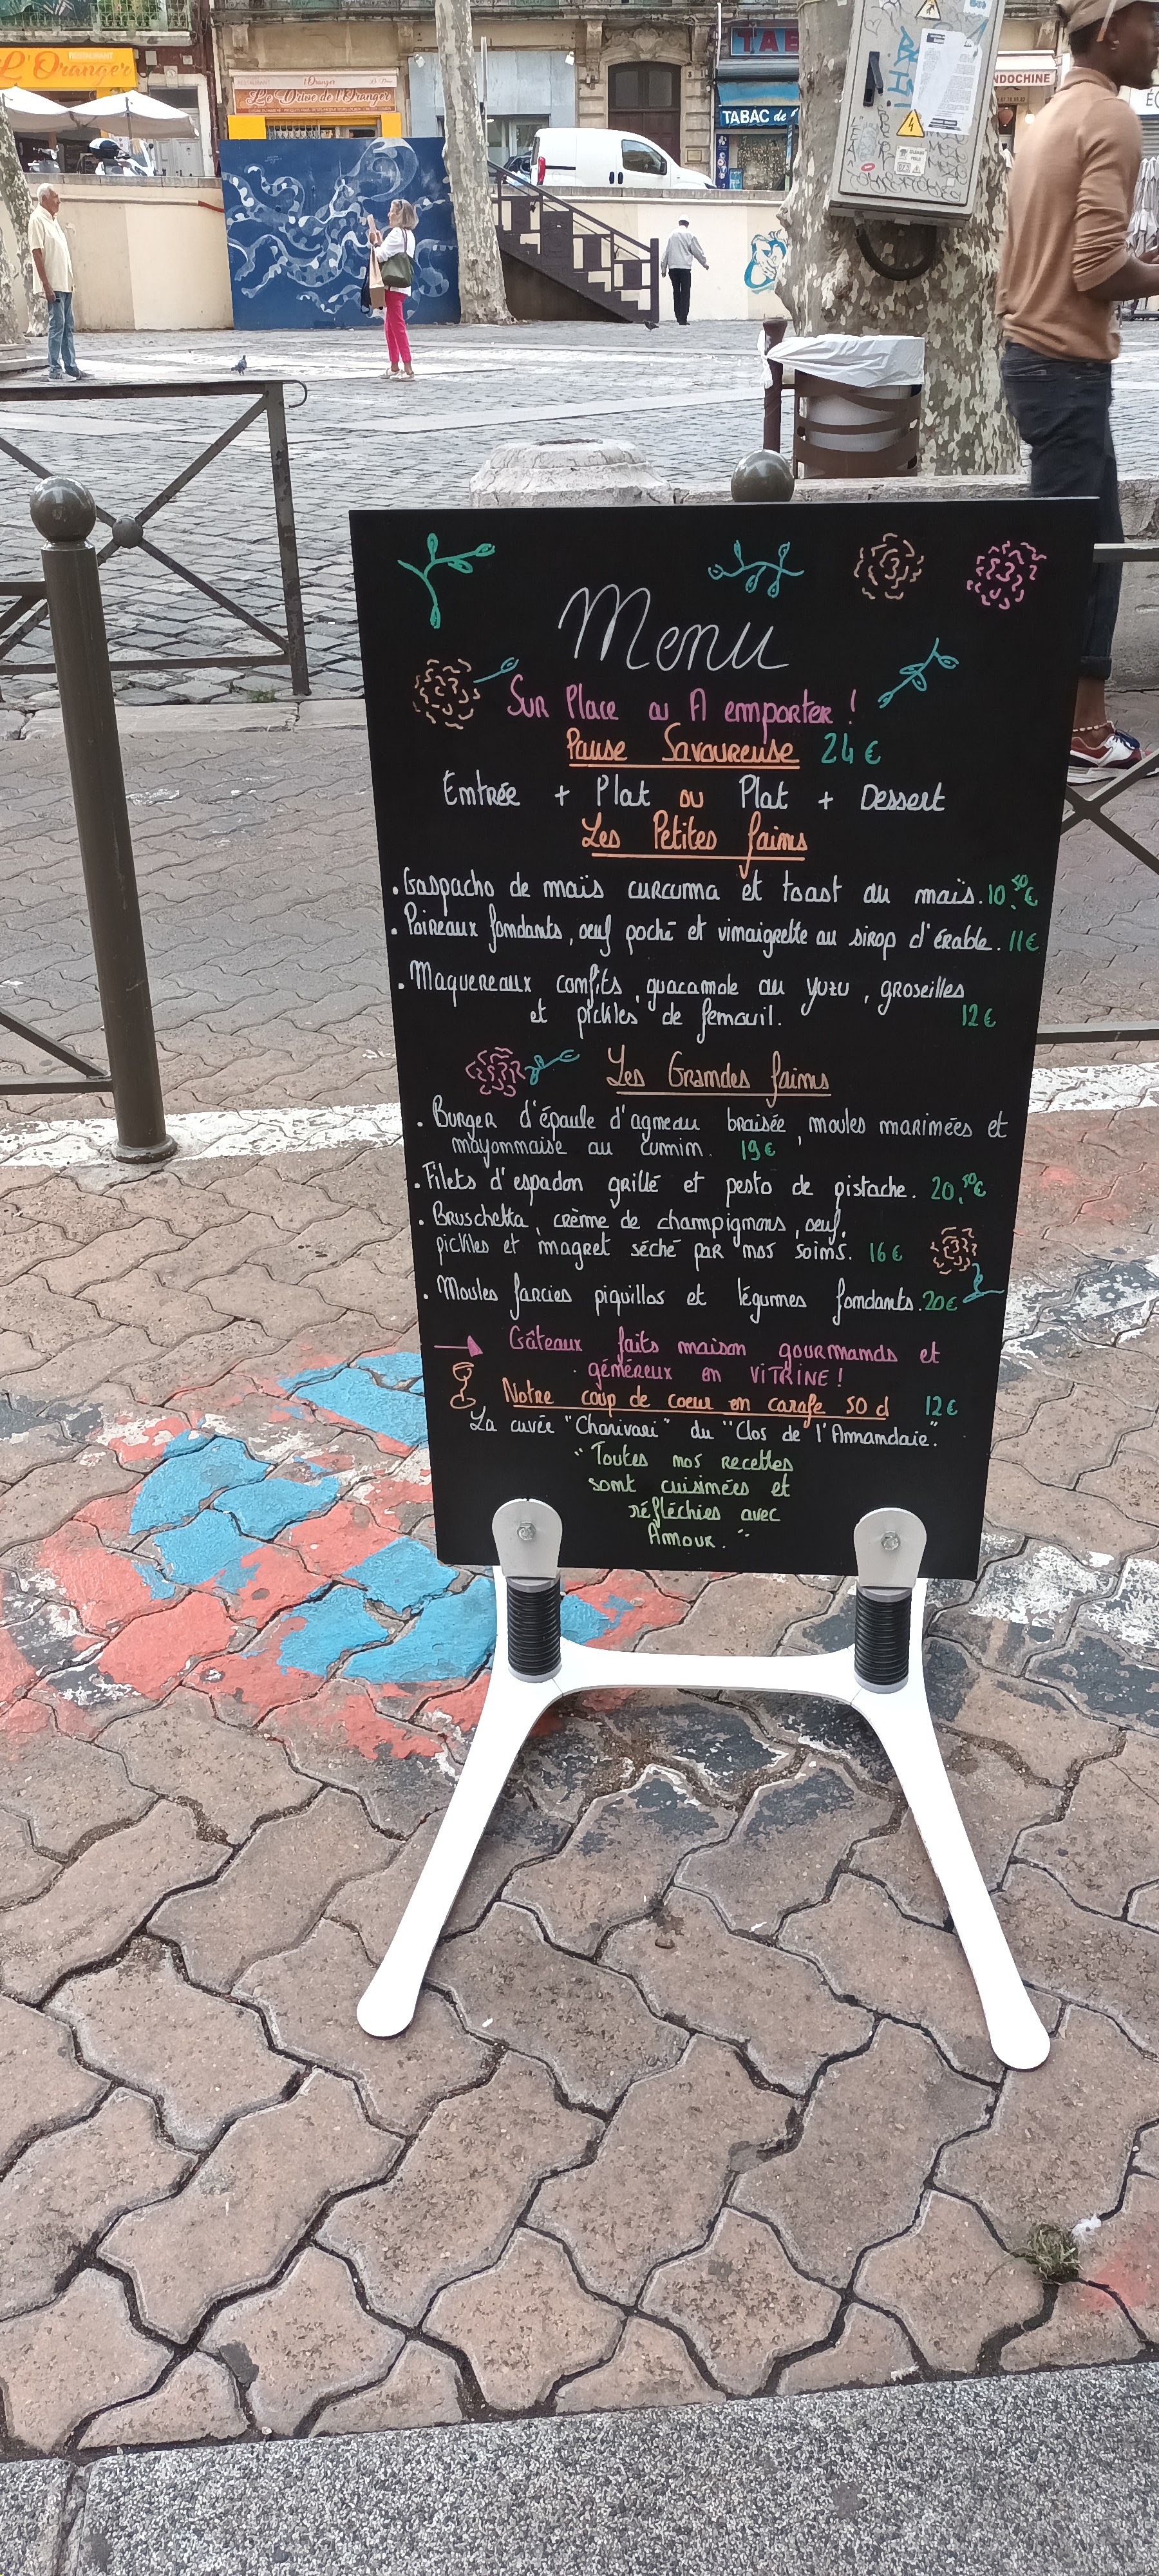 RESTAURANT
L'Oranger
l'Oranger
Le Drive de l'Oranger
TAB
TABAC de
INDOCHINE
Menu
Sur Place ou A emporter !
Pause Savoureuse 24 €
Entrée + Plat ou Plat + Dessert
Les Petites faims
. Gaspacho de maïs curcuma et toast au maïs. 10,50€
. Poireaux fondants, oeuf poché et vinaigrette au sirop d'érable. 11€
. Maquereaux confits, guacamole au yuzu, groseilles
et pickles de fenouil. 12€
Les Grandes faims
. Burger d'épaule d'agneau braisée, moules marinées et
mayonnaise au cumin. 19€
. Filets d'espadon grillé et pesto de pistache. 20,50€
. Bruschetta, crème de champignons, oeuf,
pickles et magret séché par nos soins. 16€
. Moules farcies piquillos et légumes fondants. 20€
Gâteaux faits maison gourmands et
généreux en VITRINE !
Notre coup de coeur en carafe 50 cl 12€
La cuvée "Charivari" du "Clos de l'Amandaie".
"Toutes nos recettes
sont cuisinées et
réfléchies avec
Amour."